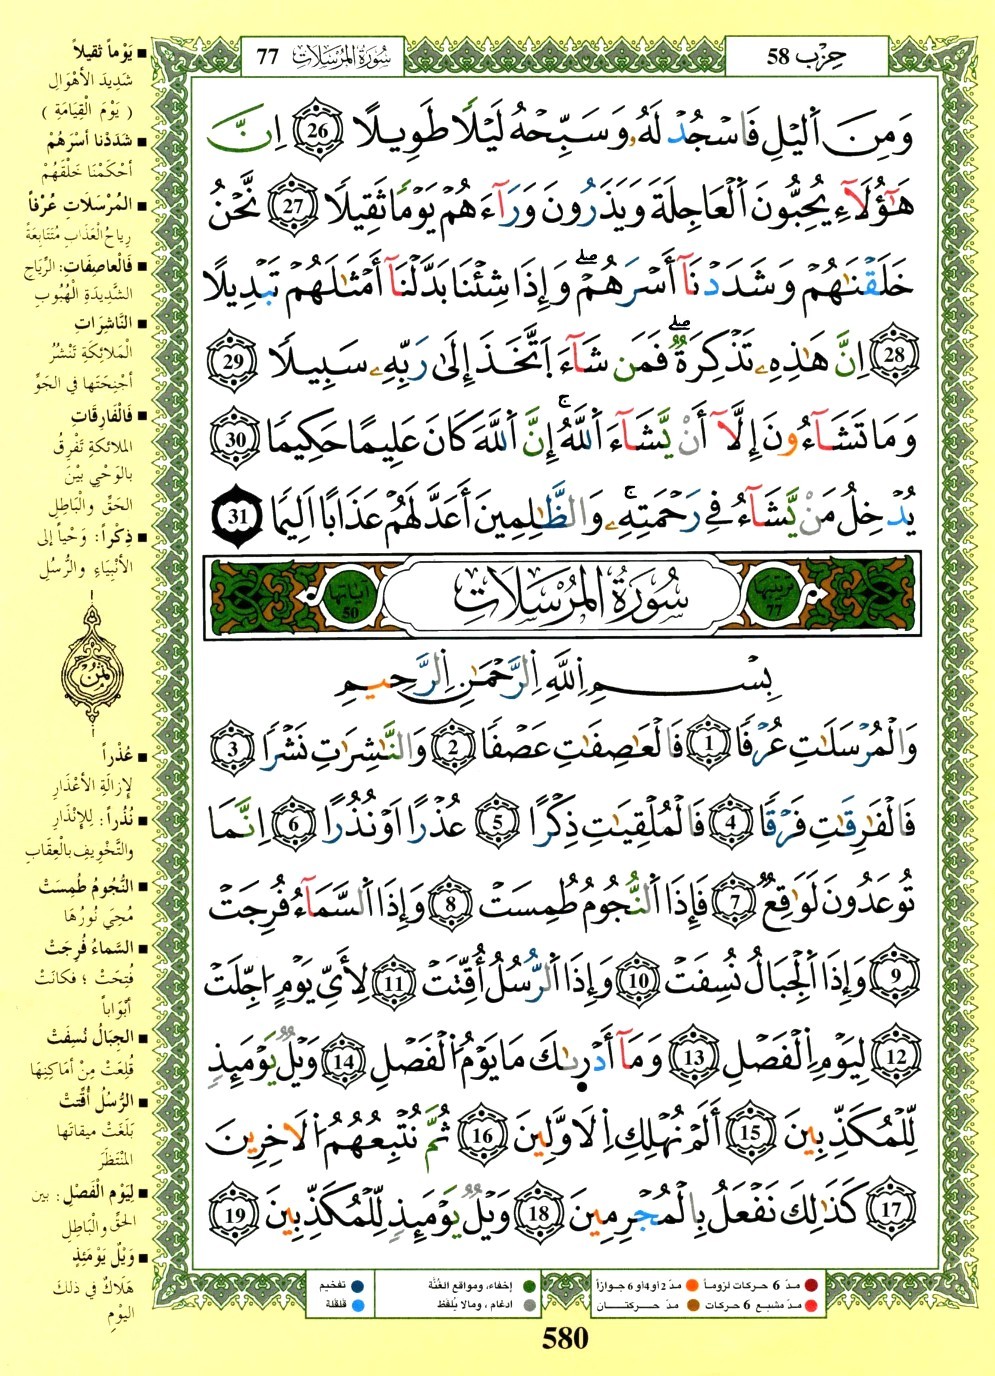 سُورَةُ المُرْسَلَات 77
حِزْب 58
وَمِنَ اَ۬ليْلِ فَاسْجُدْ لَهُۥ وَسَبِّحْهُ لَيْلًا طَوِيلًا 26 اِنَّ
هَٰٓؤُلَآءِ يُحِبُّونَ اَ۬لْعَاجِلَةَ وَيَذَرُونَ وَرَآءَهُمْ يَوْمًا ثَقِيلًا 27 نَّحْنُ
خَلَقْنَٰهُمْ وَشَدَدْنَآ أَسْرَهُمْۖ وَإِذَا شِئْنَا بَدَّلْنَآ أَمْثَٰلَهُمْ تَبْدِيلًا
28 اِنَّ هَٰذِهِۦ تَذْكِرَةٌۖ فَمَن شَآءَ اَ۪تَّخَذَ إِلَىٰ رَبِّهِۦ سَبِيلًا 29
وَمَا تَشَآءُونَ إِلَّآ أَنْ يَّشَآءَ اَ۬للَّهُۚ إِنَّ اَ۬للَّهَ كَانَ عَلِيمًا حَكِيمًا 30
يُدْخِلُ مَنْ يَّشَآءُ فِي رَحْمَتِهِۦۚ وَالظَّٰلِمِينَ أَعَدَّ لَهُمْ عَذَابًا اَلِيمًا 31
ترتيبها 77 سُورَةُ المُرْسَلَاتِ آياتها 50
بِسْمِ اِ۬للَّهِ اِ۬لرَّحْمَٰنِ اِ۬لرَّحِيمِ
وَالْمُرْسَلَٰتِ عُرْفًا 1 فَالْعَٰصِفَٰتِ عَصْفًا 2 وَالنَّٰشِرَٰتِ نَشْرًا 3
فَالْفَٰرِقَٰتِ فَرْقًا 4 فَالْمُلْقِيَٰتِ ذِكْرًا 5 عُذْرًا اَوْ نُذُرًا 6 اِنَّمَا
تُوعَدُونَ لَوَٰقِعٌ 7 فَإِذَا اَ۬لنُّجُومُ طُمِسَتْ 8 وَإِذَا اَ۬لسَّمَآءُ فُرِجَتْ
9 وَإِذَا اَ۬لْجِبَالُ نُسِفَتْ 10 وَإِذَا اَ۬لرُّسُلُ أُقِّتَتْ 11 لِأَيِّ يَوْمٍ اُجِّلَتْ
12 لِيَوْمِ اِ۬لْفَصْلِ 13 وَمَآ أَدْر۪ىٰكَ مَا يَوْمُ اُ۬لْفَصْلِ 14 وَيْلٌ يَوْمَئِذٍ
لِّلْمُكَذِّبِينَ 15 أَلَمْ نُهْلِكِ اِ۬لَاوَّلِينَ 16 ثُمَّ نُتْبِعُهُمُ اُ۬لَاخِرِينَ
17 كَذَٰلِكَ نَفْعَلُ بِالْمُجْرِمِينَ 18 وَيْلٌ يَوْمَئِذٍ لِّلْمُكَذِّبِينَ 19
■ يَوْماً ثَقِيلاً
شَدِيدَ الأَهْوَالِ
( يَوْمَ القِيَامَةِ )
■ شَدَدْنا أَسْرَهُمْ
أَحْكَمْنَا خَلْقَهُمْ
■ المُرْسَلَاتِ عُرْفاً
رِياحُ العَذابِ مُتَتابِعَةً
■ فَالْعاصِفَاتِ: الرِّيَاحِ
الشَّدِيدَةِ الْهُبُوبِ
■ النَّاشِرَاتِ
الْمَلائِكَةِ تَنْشُرُ
أَجْنِحَتَها في الجَوِّ
■ فَالْفَارِقَاتِ
الملائكةِ تَفْرِقُ
بالوَحْيِ بَيْنَ
الحَقِّ والْبَاطِلِ
■ ذِكْراً: وَحْياً إلى
الأَنْبِيَاءِ والرُّسُلِ
■ عُذْراً
لإزالَةِ الأَعْذَارِ
■ نُذُراً: لِلإِنْذَارِ
والتَّخْوِيفِ بالْعِقَابِ
■ النُّجُومُ طُمِسَتْ
مُحِيَ نُورُهَا
■ السَّماءُ فُرِجَتْ
فُتِحَتْ ؛ فكانَتْ
أَبْوَاباً
■ الجِبَالُ نُسِفَتْ
قُلِعَتْ مِنْ أَماكِنِهَا
■ الرُّسُلُ أُقِّتَتْ
بَلَغَتْ مِيقاتَها
المُنْتَظَرَ
■ لِيَوْمِ الْفَصْلِ: بين
الحَقِّ والْبَاطِلِ
■ وَيْلٌ يَوْمَئِذٍ
هَلَاكٌ في ذلكَ
اليَوْمِ
مدّ 6 حركات لزوماً مدّ 2 أو 4 أو 6 جوازاً إخفاء، ومواقع الغُنَّة تفخيم
مدّ مشبع 6 حركات مدّ حركتان ادغام، ومالا يُلفَظ قلقلة
580